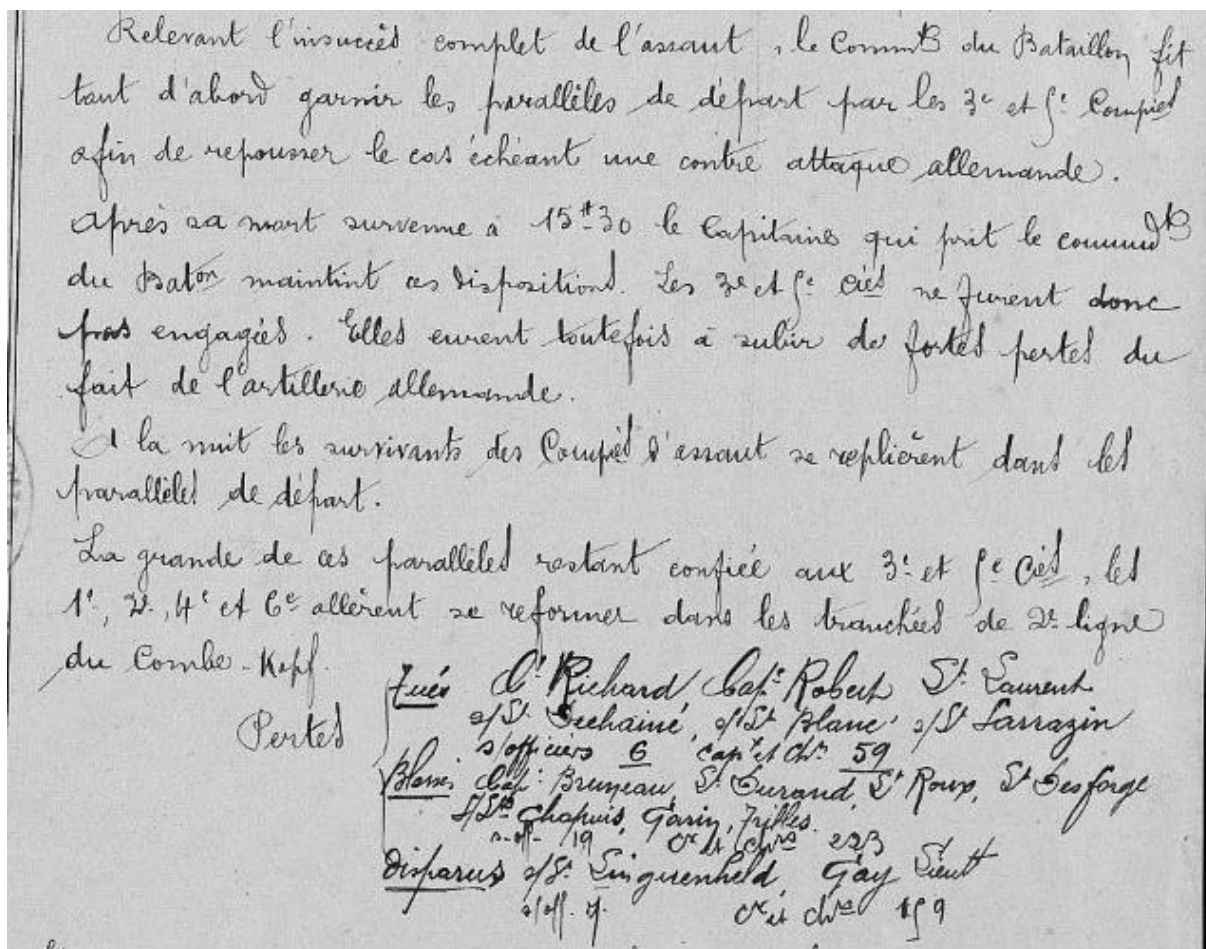 Relevant l'insuccès complet de l'assaut, le Commdt du Bataillon fit
tout d'abord garnir les parallèles de départ par les 3e et 5e Compies
afin de repousser le cas échéant une contre attaque allemande.
Après sa mort survenue à 15H30 le Capitaine qui prit le commandt
du Baton maintint ces dispositions. Les 3e et 5e Cies ne furent donc
pas engagées. Elles eurent toutefois à subir de fortes pertes du
fait de l'artillerie allemande.
A la nuit les survivants des Compies d'assaut se replièrent dans les
parallèles de départ.
La grande de ces parallèles restant confiée aux 3e et 5e Cies, les
1e, 2e, 4e et 6e allèrent se reformer dans les tranchées de 2e ligne
du Combe-Kopf.
Pertes
Tués Ct Richard, Cape Robert Lt Laurent
s/Lt Dechainé, s/Lt Blanc s/Lt Sarrazin
s/officiers 6 capx et chrs 59
Blessés Cape Bruneau, Lt Durand, Lt Roux, Lt Desforge
s/Lts Chapuis, Garin, Trilles.
s-off- 19 cx et chrs 223
Disparus s/Lt Linguenheld, Gay Lieutt
s/off. 7. cx et chrs 159